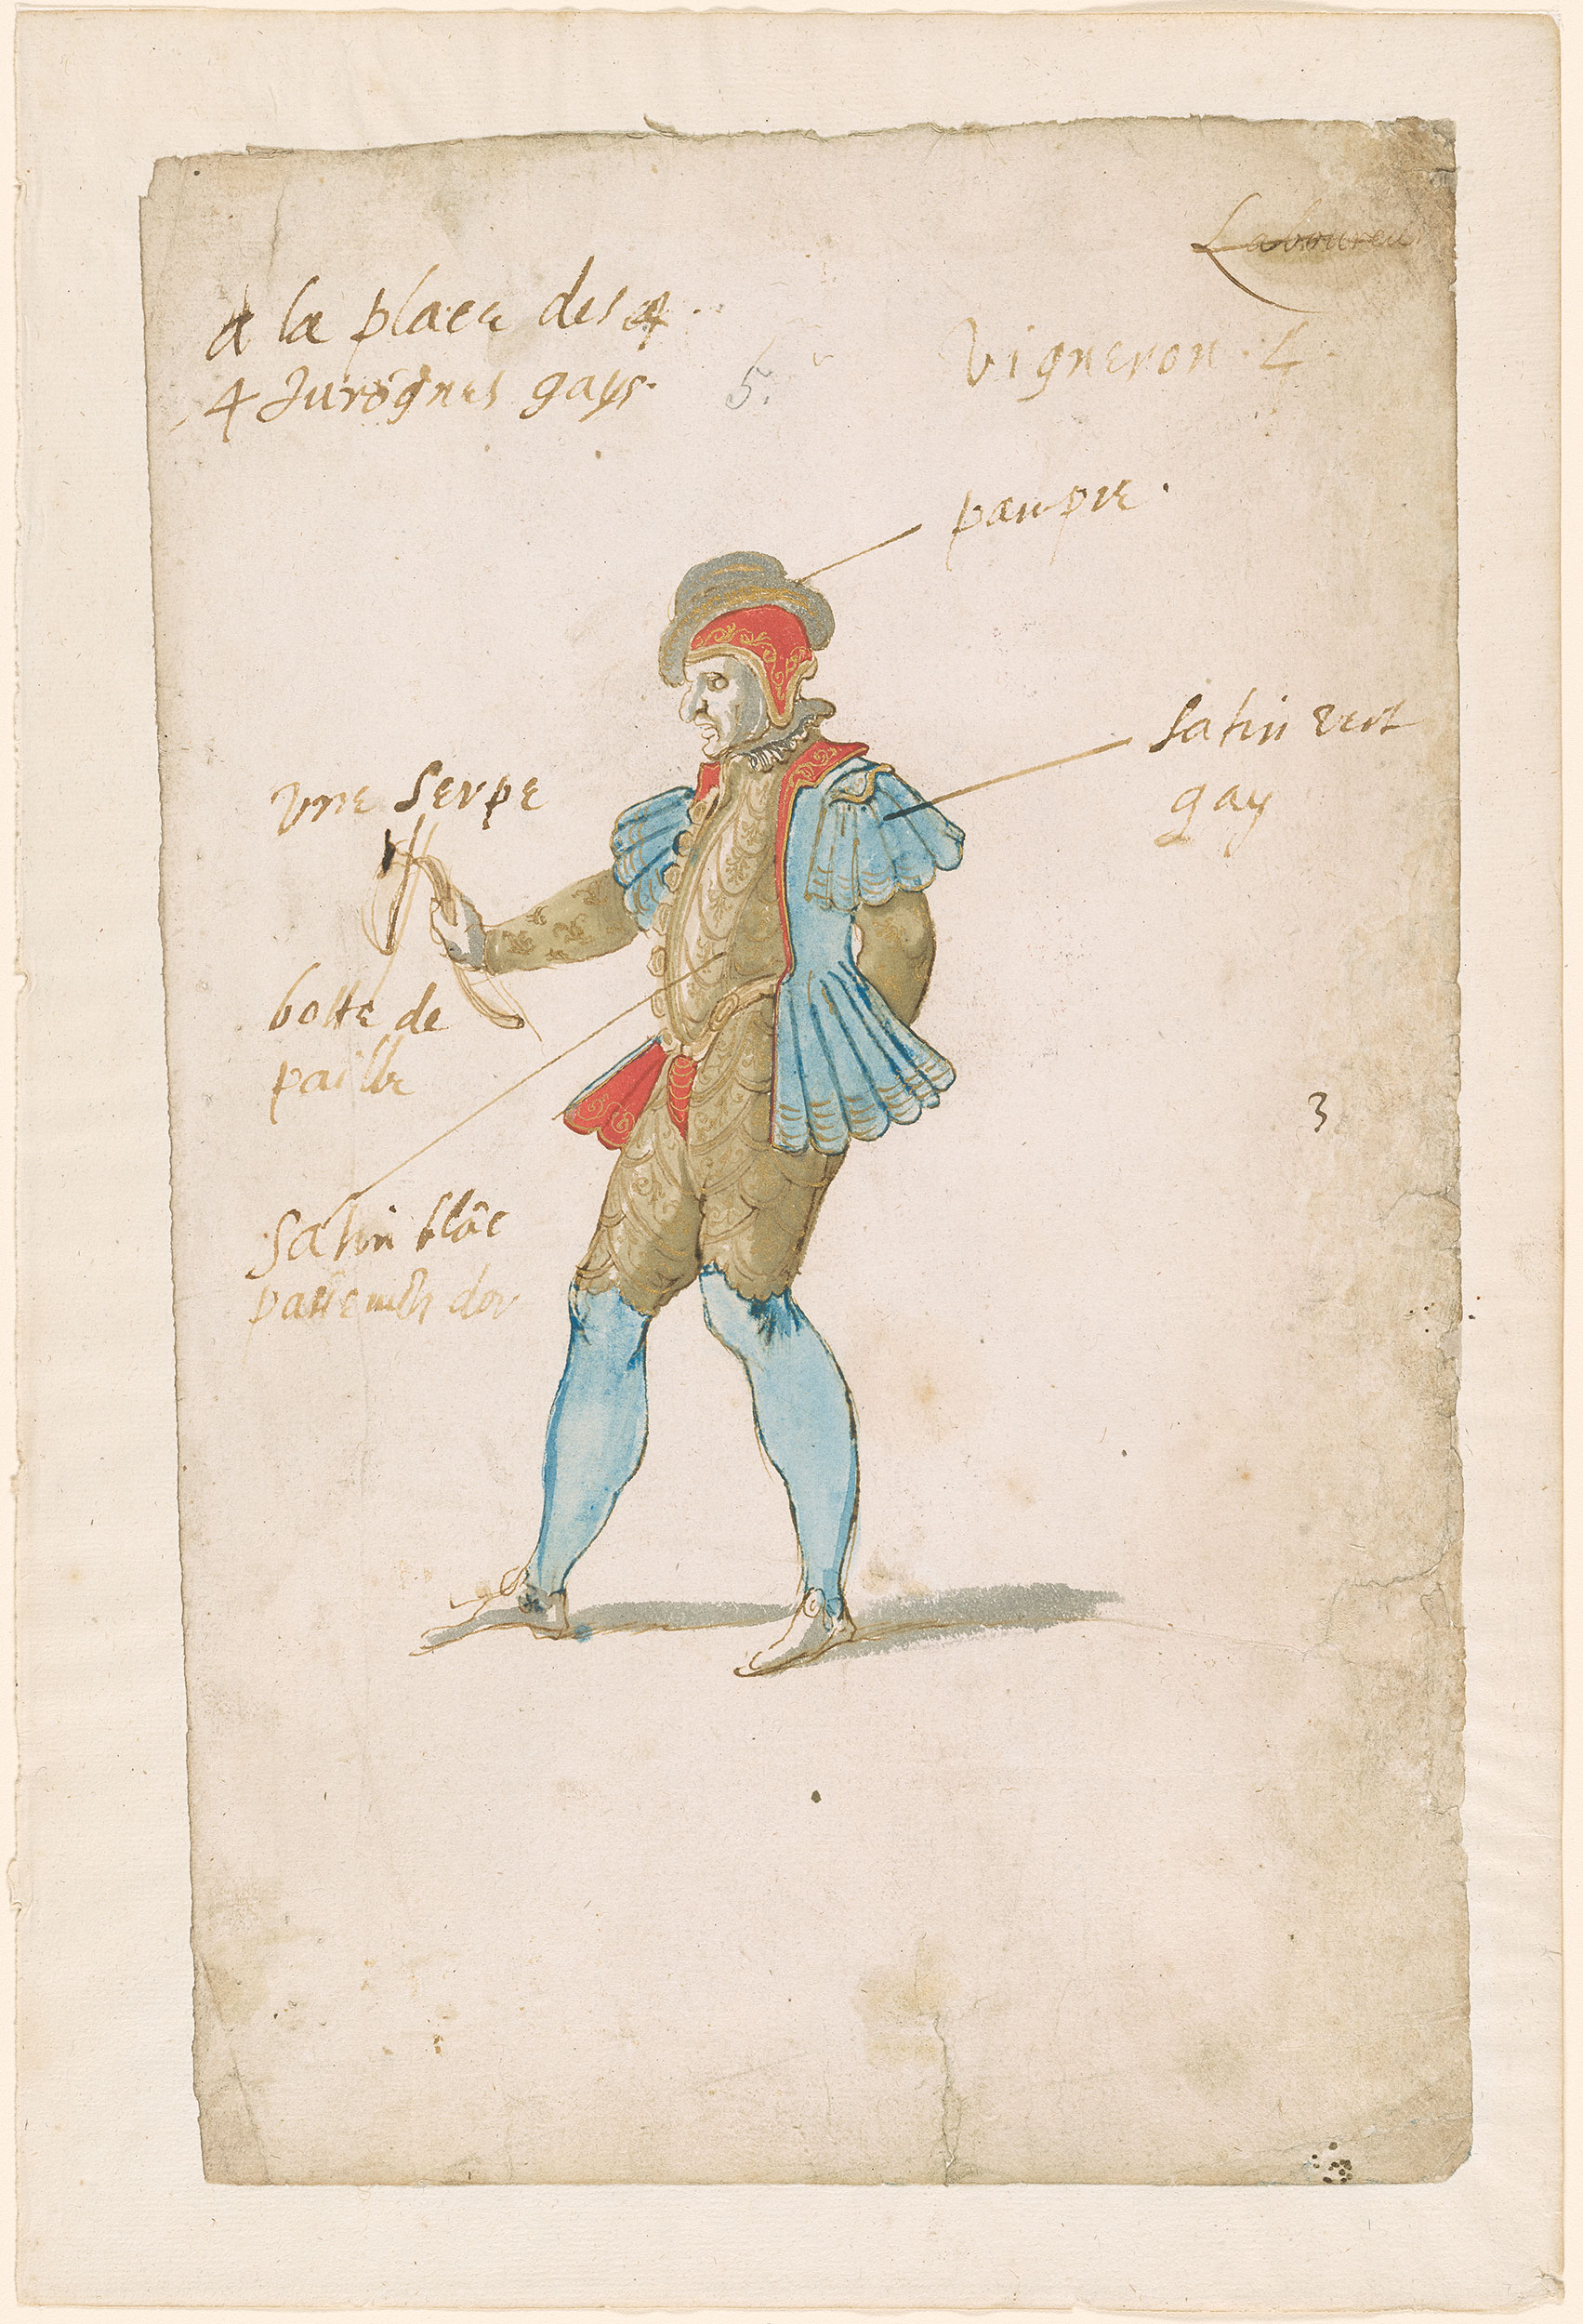 Laboureur
A la place des 4
4 Iurögnes gays.
5.
Vigneron. 4.
paupre.
Satin vert
gay
Vne Serpe
botte de
paille
3
Satin blãc
dor